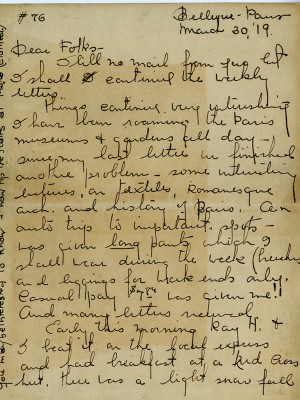 #76
Bellevue-Paris
March 30, '19.
Dear Folks-
Still no mail from you but
I shall continue the weekly
letters.
Things continue very interesting
I have been roaming the Paris
museums & gardens all day-
since my last letter I finished
another problem - some interesting
lectures, on textiles, Romanesque
arch. and history of Paris. An
auto trip to important spots-
was given long pants which I
shall wear during the week (breeches
and leggings for week ends only.)
Casual pay $7.50 was given me!!
And many letters received.
Early this morning Ray H. &
I beat it on the local express
and had breakfast at a Red Cross
hut. There was a light snow fall
You may be interested to know I have